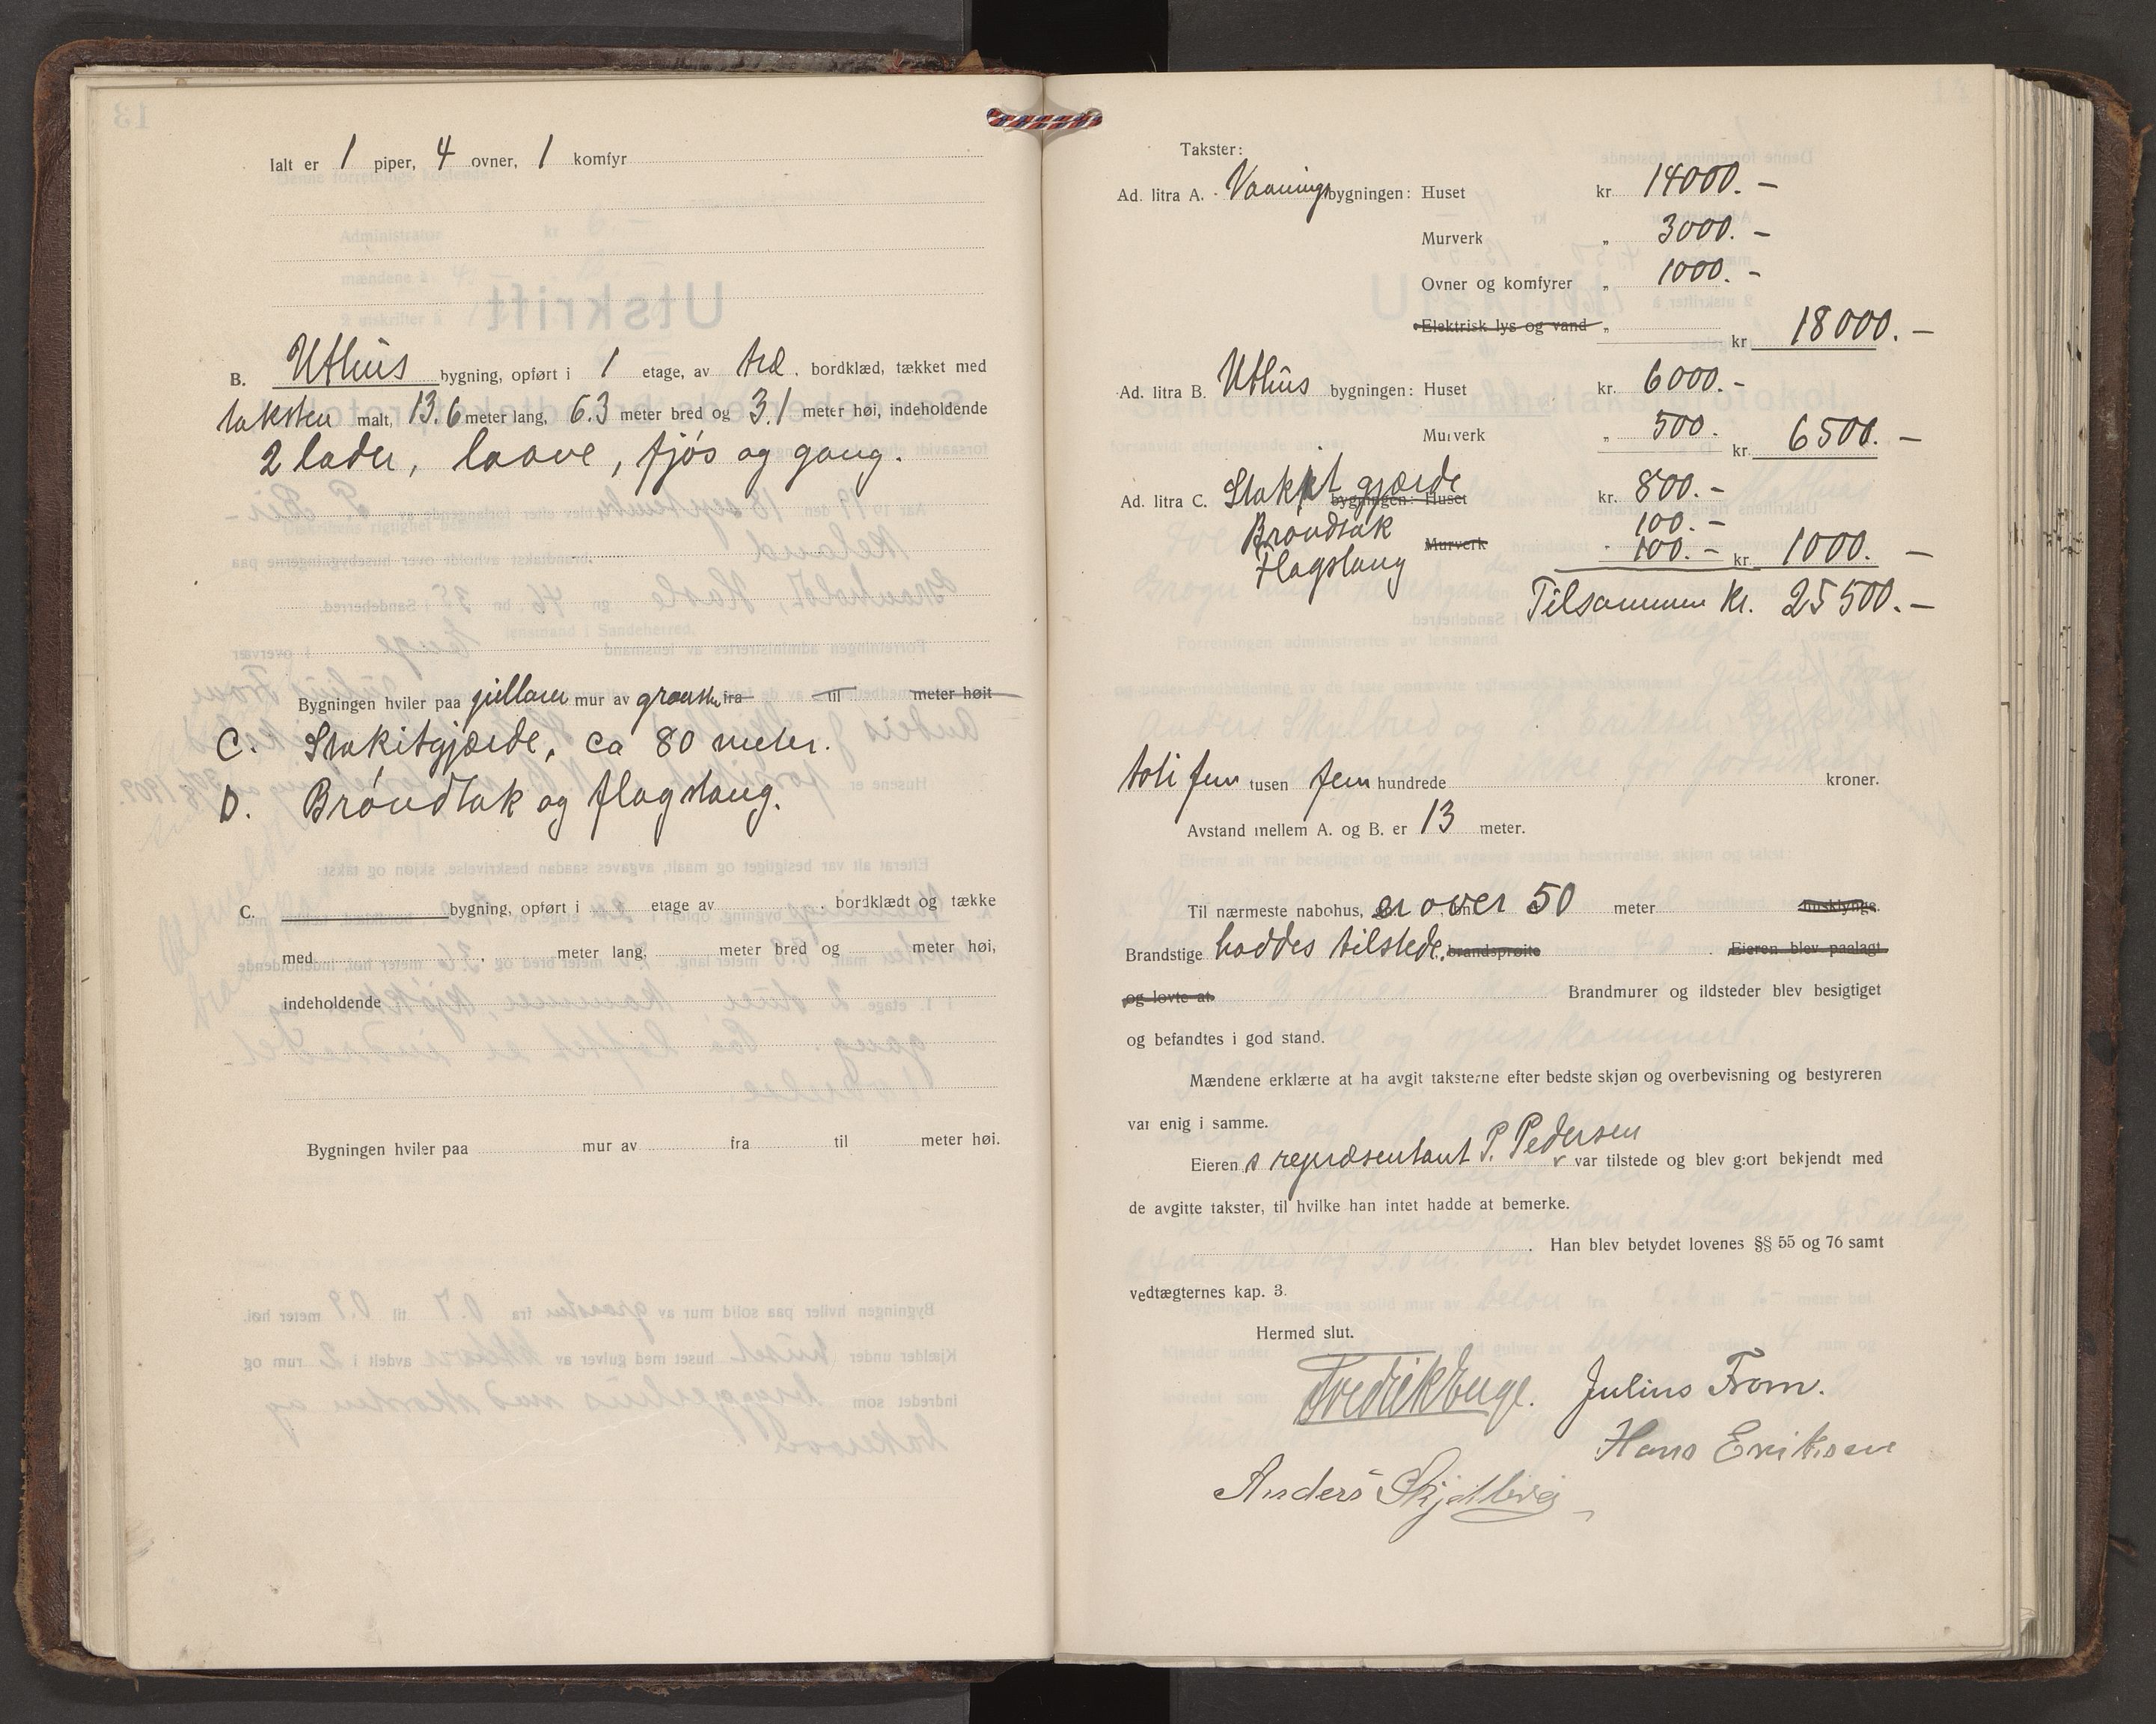 Ialt er 1 piper, 4 ovner, 1 komfyr
B. Uthus bygning, opført i 1 etage, av træ. bordklæd, tækket med
taksten malt, 13.6 meter lang, 6.3 meter bred og 3.1 meter høi, indeholdende
2 lader, laave, fjøs og gang.
Bygningen hviler paa pillarer mur av graasten fra — til — meter høit
C. Stakitgjærde, ca 80 meter.
D. Brøndtak og flagstang.
C. bygning, opført i etage av , bordklædt og tække
med , meter lang, meter bred og meter høi,
indeholdende
Bygningen hviler paa mur av fra til meter høi.
Takster:
Ad. litra A. Vaanings bygningen: Huset kr. 14000.-
Murverk „ 3000.-
Ovner og komfyrer „ 1000.-
Elektrisk lys og vand „ kr 18000.-
Ad. litra B. Uthus bygningen: Huset kr. 6000.-
Murverk „ 500. kr. 6500.-
Ad. litra C. Stakit gjærde bygningen: Huset kr. 800.-
Brøndtak 100.-
Flagstang Murverk 100.- kr. 1000.-
Tilsammen kr. 25500.-
toti fem tusen fem hundrede kroner.
Avstand mellem A. og B. er 13 meter.
Til nærmeste nabohus, er over 50 meter husklynge.
Brandstige haddes tilstede, brandsprøite . Eieren blev paalagt
og lovte at Brandmurer og ildsteder blev besigtiget
og befandtes i god stand.
Mændene erklærte at ha avgit taksterne efter bedste skjøn og overbevisning og bestyreren
var enig i samme.
Eieren s repræsentant P. Pedersen var tilstede og blev gjort bekjendt med
de avgitte takster, til hvilke han intet hadde at bemerke.
. Han blev betydet lovenes §§ 55 og 76 samt
vedtægternes kap. 3.
Hermed slut.
Fredrik Enge. Julius Fram.
Hans Eriksen
Anders